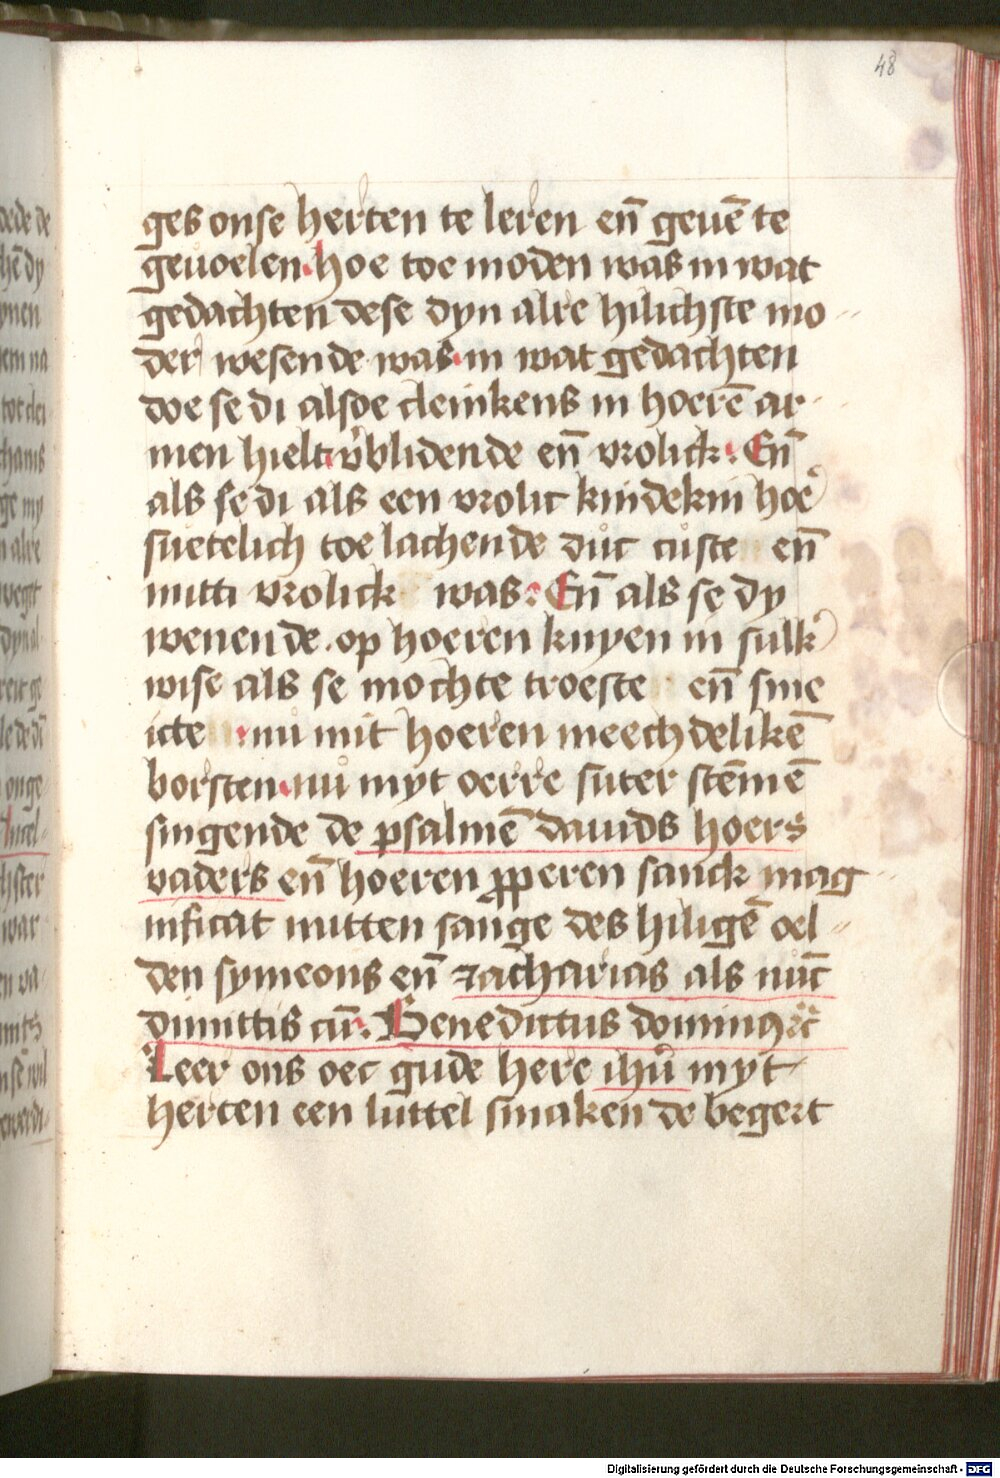 48
ges onse herten te leren en̄ geuē te
geuoelen. hoe toe moden was in wat
gedachten dese dyn alre hilichste mo
der wesende was. in wat gedachten
doe se di alsoe cleinkens in hoerē ar
men hielt v̓blidende en̄ vrolick. En̄
als se di als een vrolic kindekin hoer̄
suetelich toe lachende duͦc cuͦste en̄
mitti vrolick was: En̄ als se dy
wenende. op hoeren knyen in sulk̓
wise als se mochte troeste en̄ sme
icte nuͦ mit hoeren meechdelikē
borsten. nuͦ myt oerre suter stēmē
singende de psalmē dauids hoers
vaders en̄ hoeren ꝓperen sanck mag
nificat mitten sange des hiligē oel
den symeons en̄ zacharias als nūc
dimittis cū. Benedictus dominꝰ ꝛc
Leer ons oec gude here ihū myt
herten een luttel smaken de begert
Digitalisierung gefördert durch die Deutsche Forschungsgemeinschaft - DFG